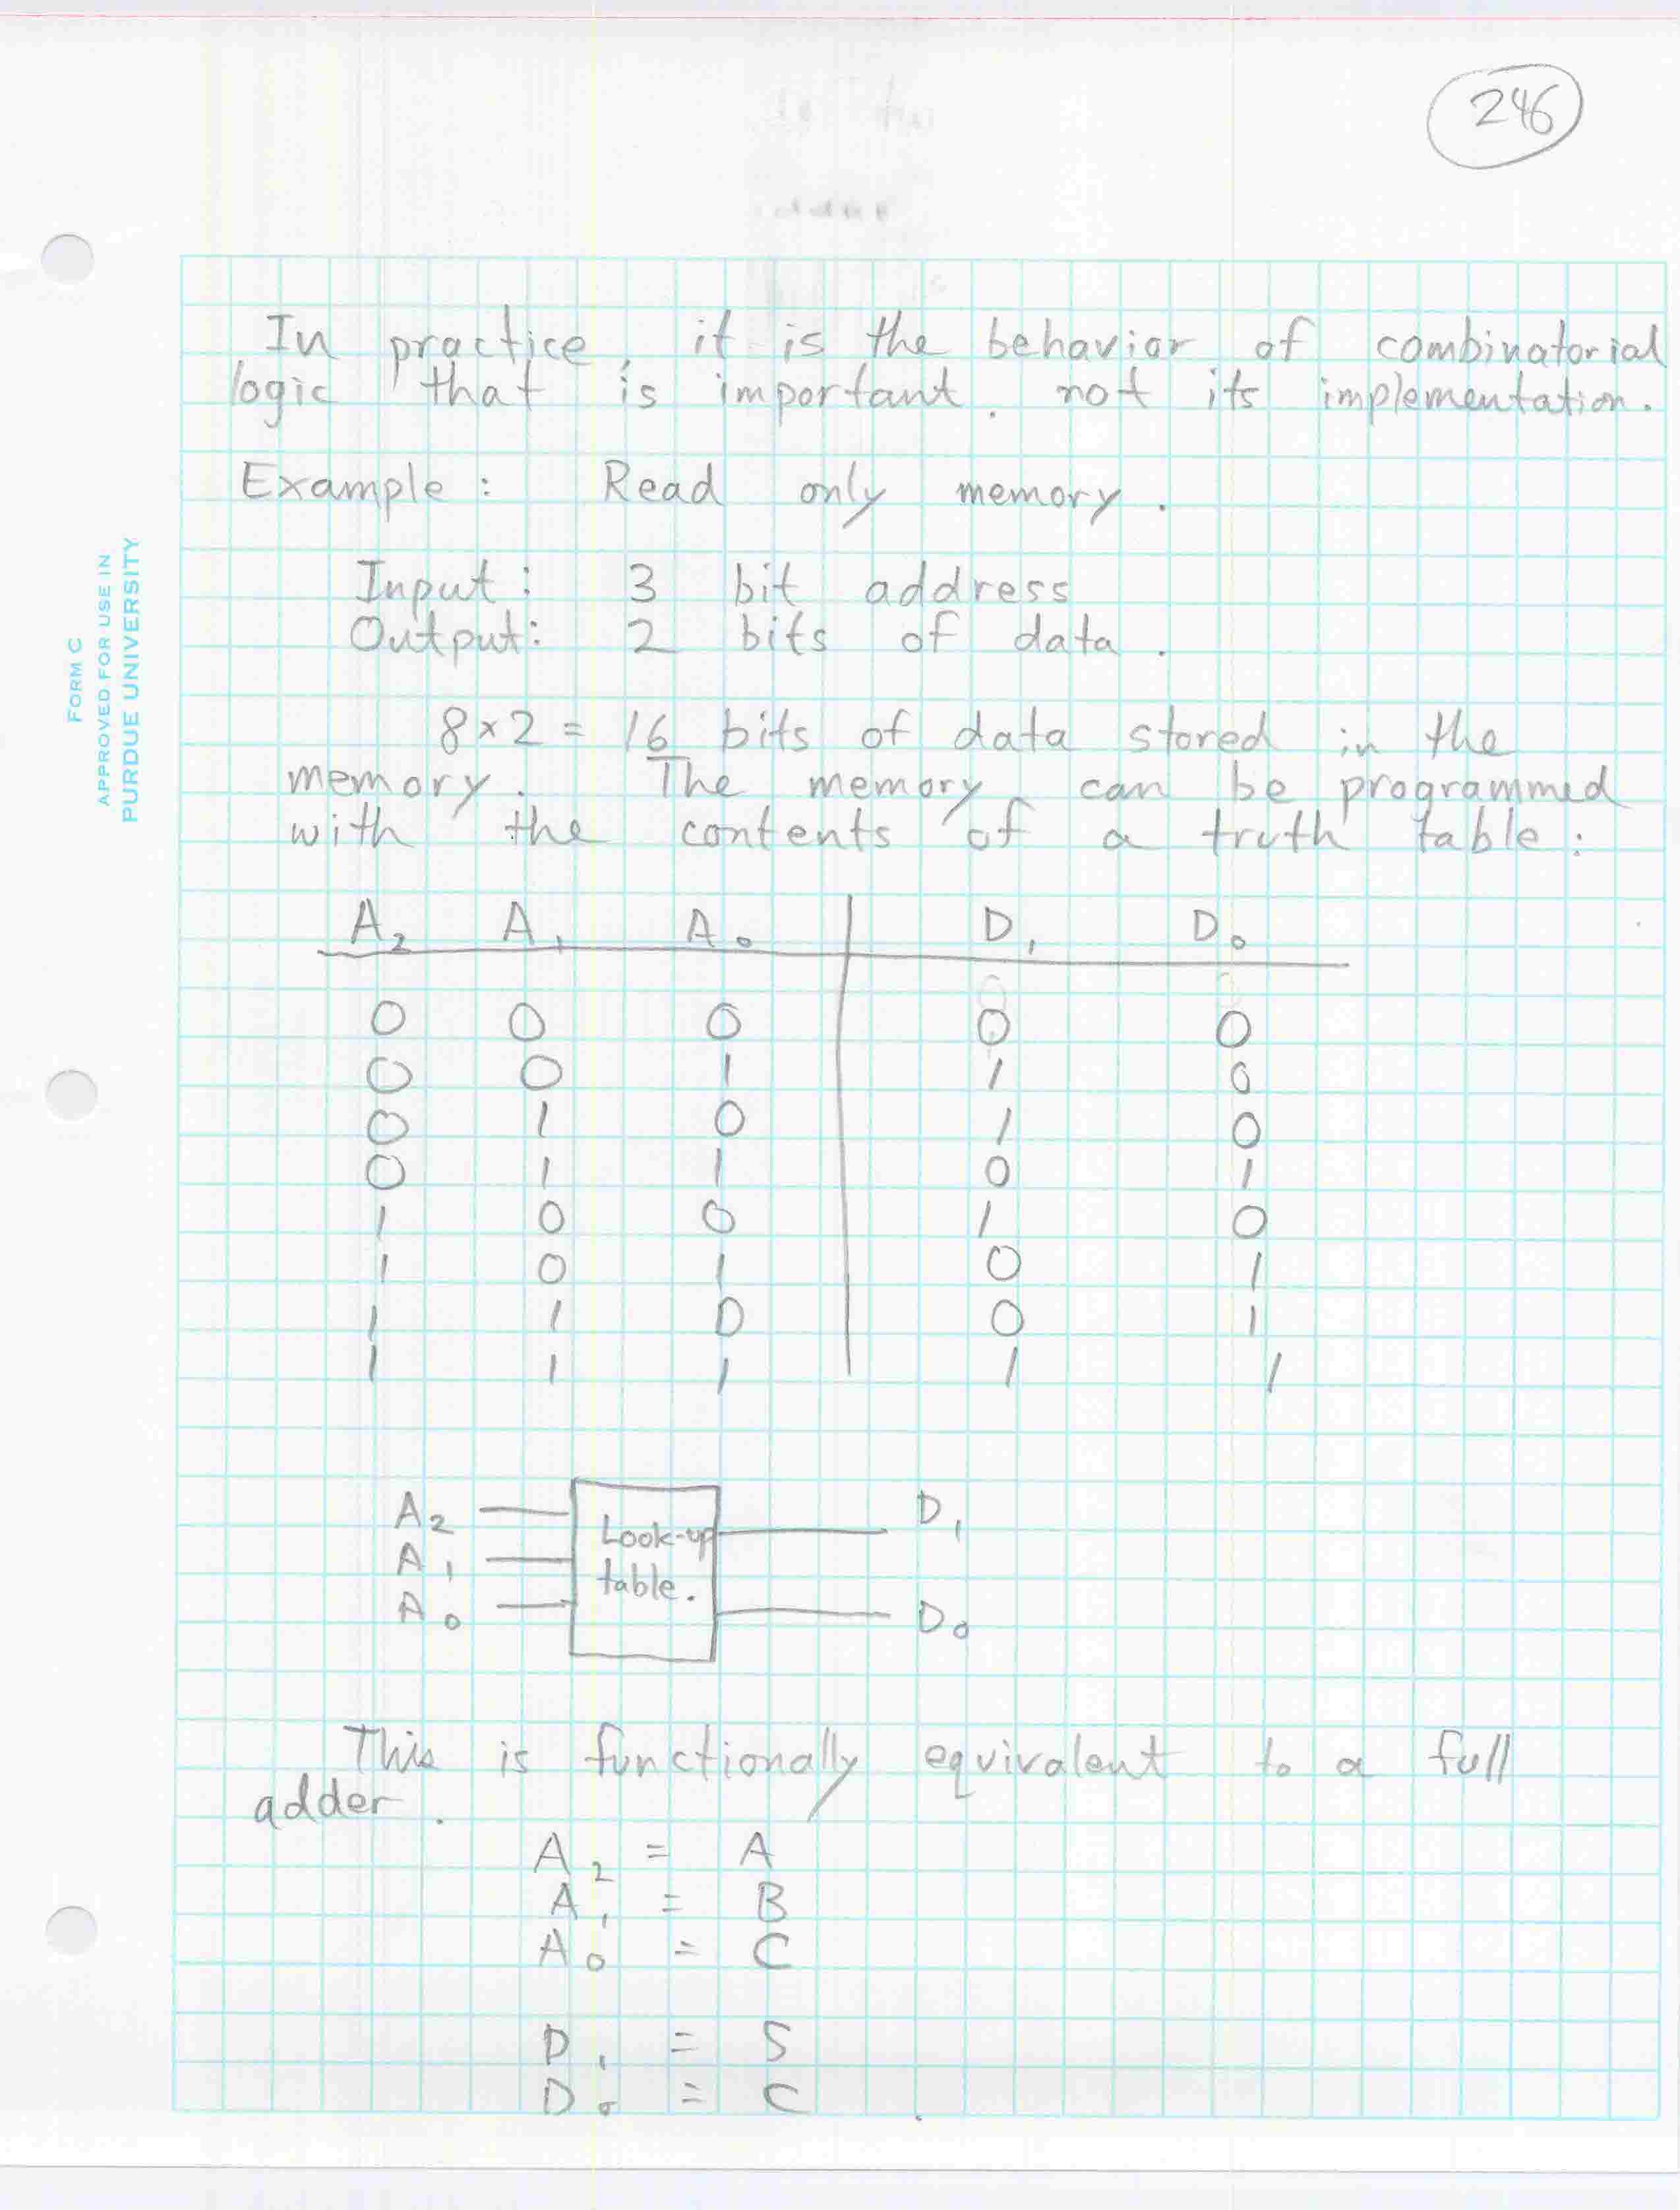 246
In practice, it is the behavior of combinatorial
logic that is important, not its implementation.
Example: Read only memory.
Input: 3 bit address
Output: 2 bits of data.
8 × 2 = 16 bits of data stored in the
memory. The memory can be programmed
with the contents of a truth table:
A₂ A₁ A₀ D₁ D₀
0 0 0 0 0
0 0 1 1 0
0 1 0 1 0
0 1 1 0 1
1 0 0 1 0
1 0 1 0 1
1 1 0 0 1
1 1 1 1 1
A₂
A₁
A₀
Look-up
table.
D₁
D₀
This is functionally equivalent to a full
adder.
A₂ = A
A₁ = B
A₀ = C
D₁ = S
D₀ = C
FORM C
APPROVED FOR USE IN
PURDUE UNIVERSITY